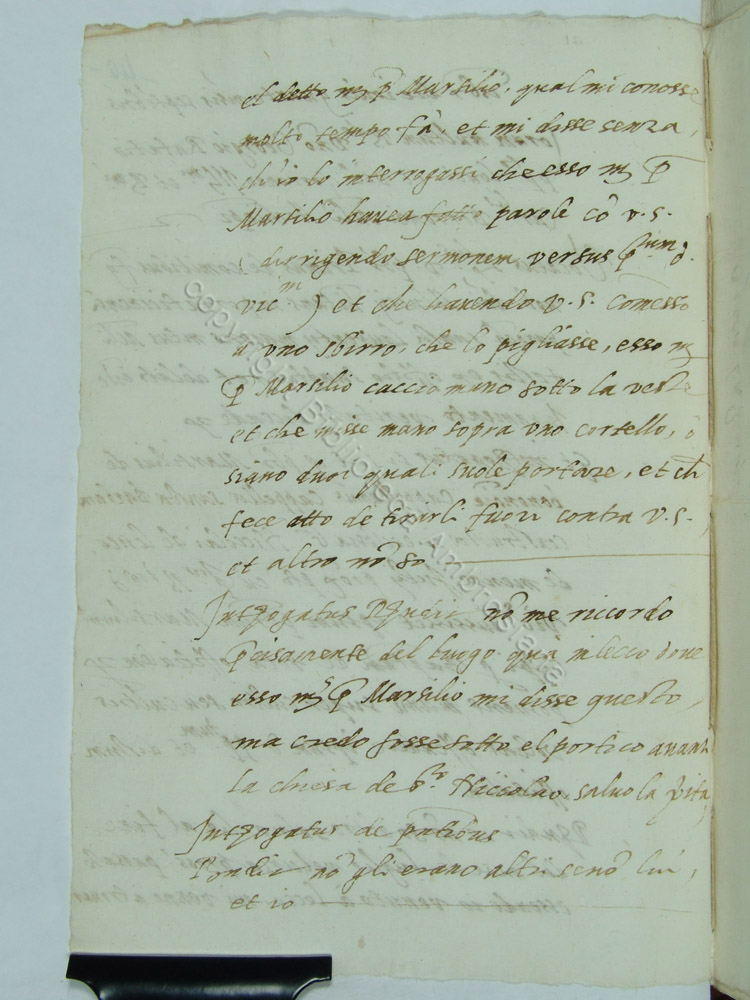 el detto mꝫ p̄ Marsilio, qual mi conosse
molti tempo fà et mi disse senza,
ch'io lo interrogassi che esso mꝫ p̄
Marsilio hauea fatto parole cō v. s.
( dirrigendo sermonem versus p̄.um d.
vic.m ) et che hauendo v. s. comesso
a uno sbirro, che lo pigliasse, esso mꝫ
p̄ Marsilio cacciò mano sotto la veste
et che misse mano sopra uno cortello, ò
siano duoi quali suole portare, et ch̄
fece atto de tirarli fuori contra v. s.
et altro nō so
Intꝫogatus Rn̄dit nō me riccordo
p̄cisamente del luogo qua in lecco doue
esso mꝫ p̄ Marsilio mi disse questo,
ma credo fosse sotto el portico auanti
la chiesa de s.to Niccolao salvo la ῥita,
Intꝫogatus de p̄ntibus
Rondit nō gli erano altri senō lui,
et io
copyright Biblioteca Ambrosiana